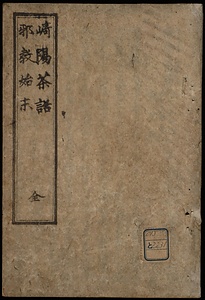 崎陽茶話
邪教始末
全